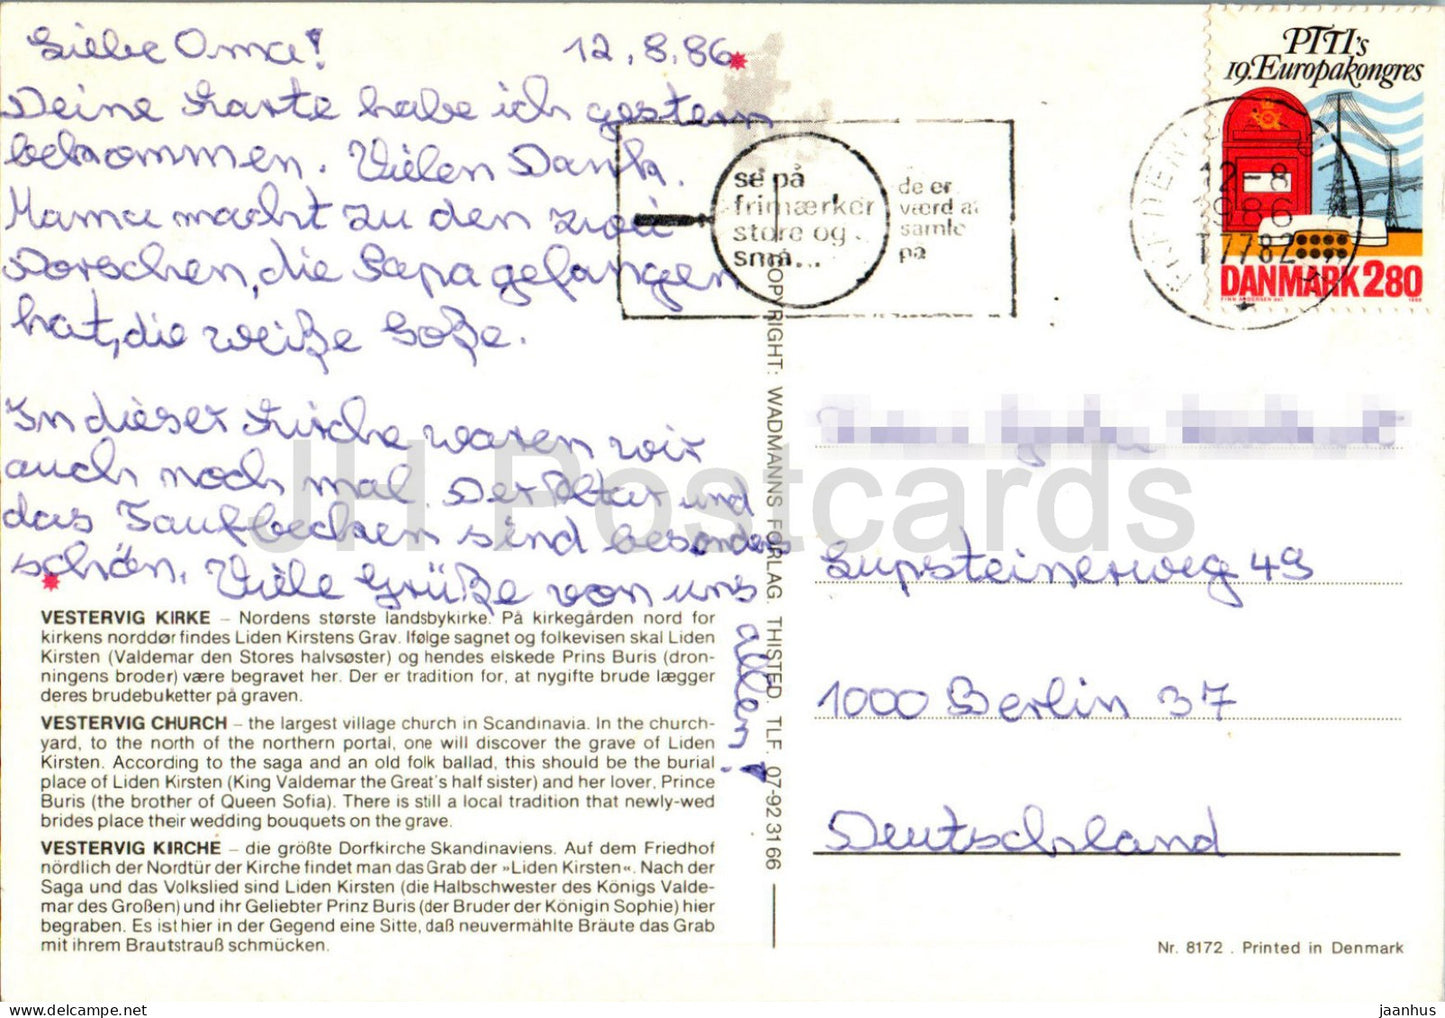 Liebe Oma! 12.8.86
Deine Karte habe ich gestern
bekommen. Vielen Dank.
Mama macht zu den zwei
Dorschen, die Papa gefangen
hat, die weiße Soße.
In dieser Kirche waren wir
auch noch mal. Der Altar und
das Taufbecken sind besonders
schön. Viele Grüße von uns
allen!
VESTERVIG KIRKE – Nordens største landsbykirke. På kirkegården nord for
kirkens norddør findes Liden Kirstens Grav. Ifølge sagnet og folkevisen skal Liden
Kirsten (Valdemar den Stores halvsøster) og hendes elskede Prins Buris (dron-
ningens broder) være begravet her. Der er tradition for, at nygifte brude lægger
deres brudebuketter på graven.
VESTERVIG CHURCH – the largest village church in Scandinavia. In the church-
yard, to the north of the northern portal, one will discover the grave of Liden
Kirsten. According to the saga and an old folk ballad, this should be the burial
place of Liden Kirsten (King Valdemar the Great's half sister) and her lover, Prince
Buris (the brother of Queen Sofia). There is still a local tradition that newly-wed
brides place their wedding bouquets on the grave.
VESTERVIG KIRCHE – die größte Dorfkirche Skandinaviens. Auf dem Friedhof
nördlich der Nordtür der Kirche findet man das Grab der »Liden Kirsten«. Nach der
Saga und das Volkslied sind Liden Kirsten (die Halbschwester des Königs Valde-
mar des Großen) und ihr Geliebter Prinz Buris (der Bruder der Königin Sophie) hier
begraben. Es ist hier in der Gegend eine Sitte, daß neuvermählte Bräute das Grab
mit ihrem Brautstrauß schmücken.
COPYRIGHT: WADMANNS FORLAG. THISTED. TLF. 07-92 31 66
se på
frimærker
store og
små...
de er
værd at
samle
på
PTTI's
19. Europakongres
DANMARK 280
FINN ANDERSEN del. 1986
12-8
1986
17782
Lupsteinerweg 49
1000 Berlin 37
Deutschland
Nr. 8172 . Printed in Denmark
JH Postcards
jaanhus © HipPostcard.com